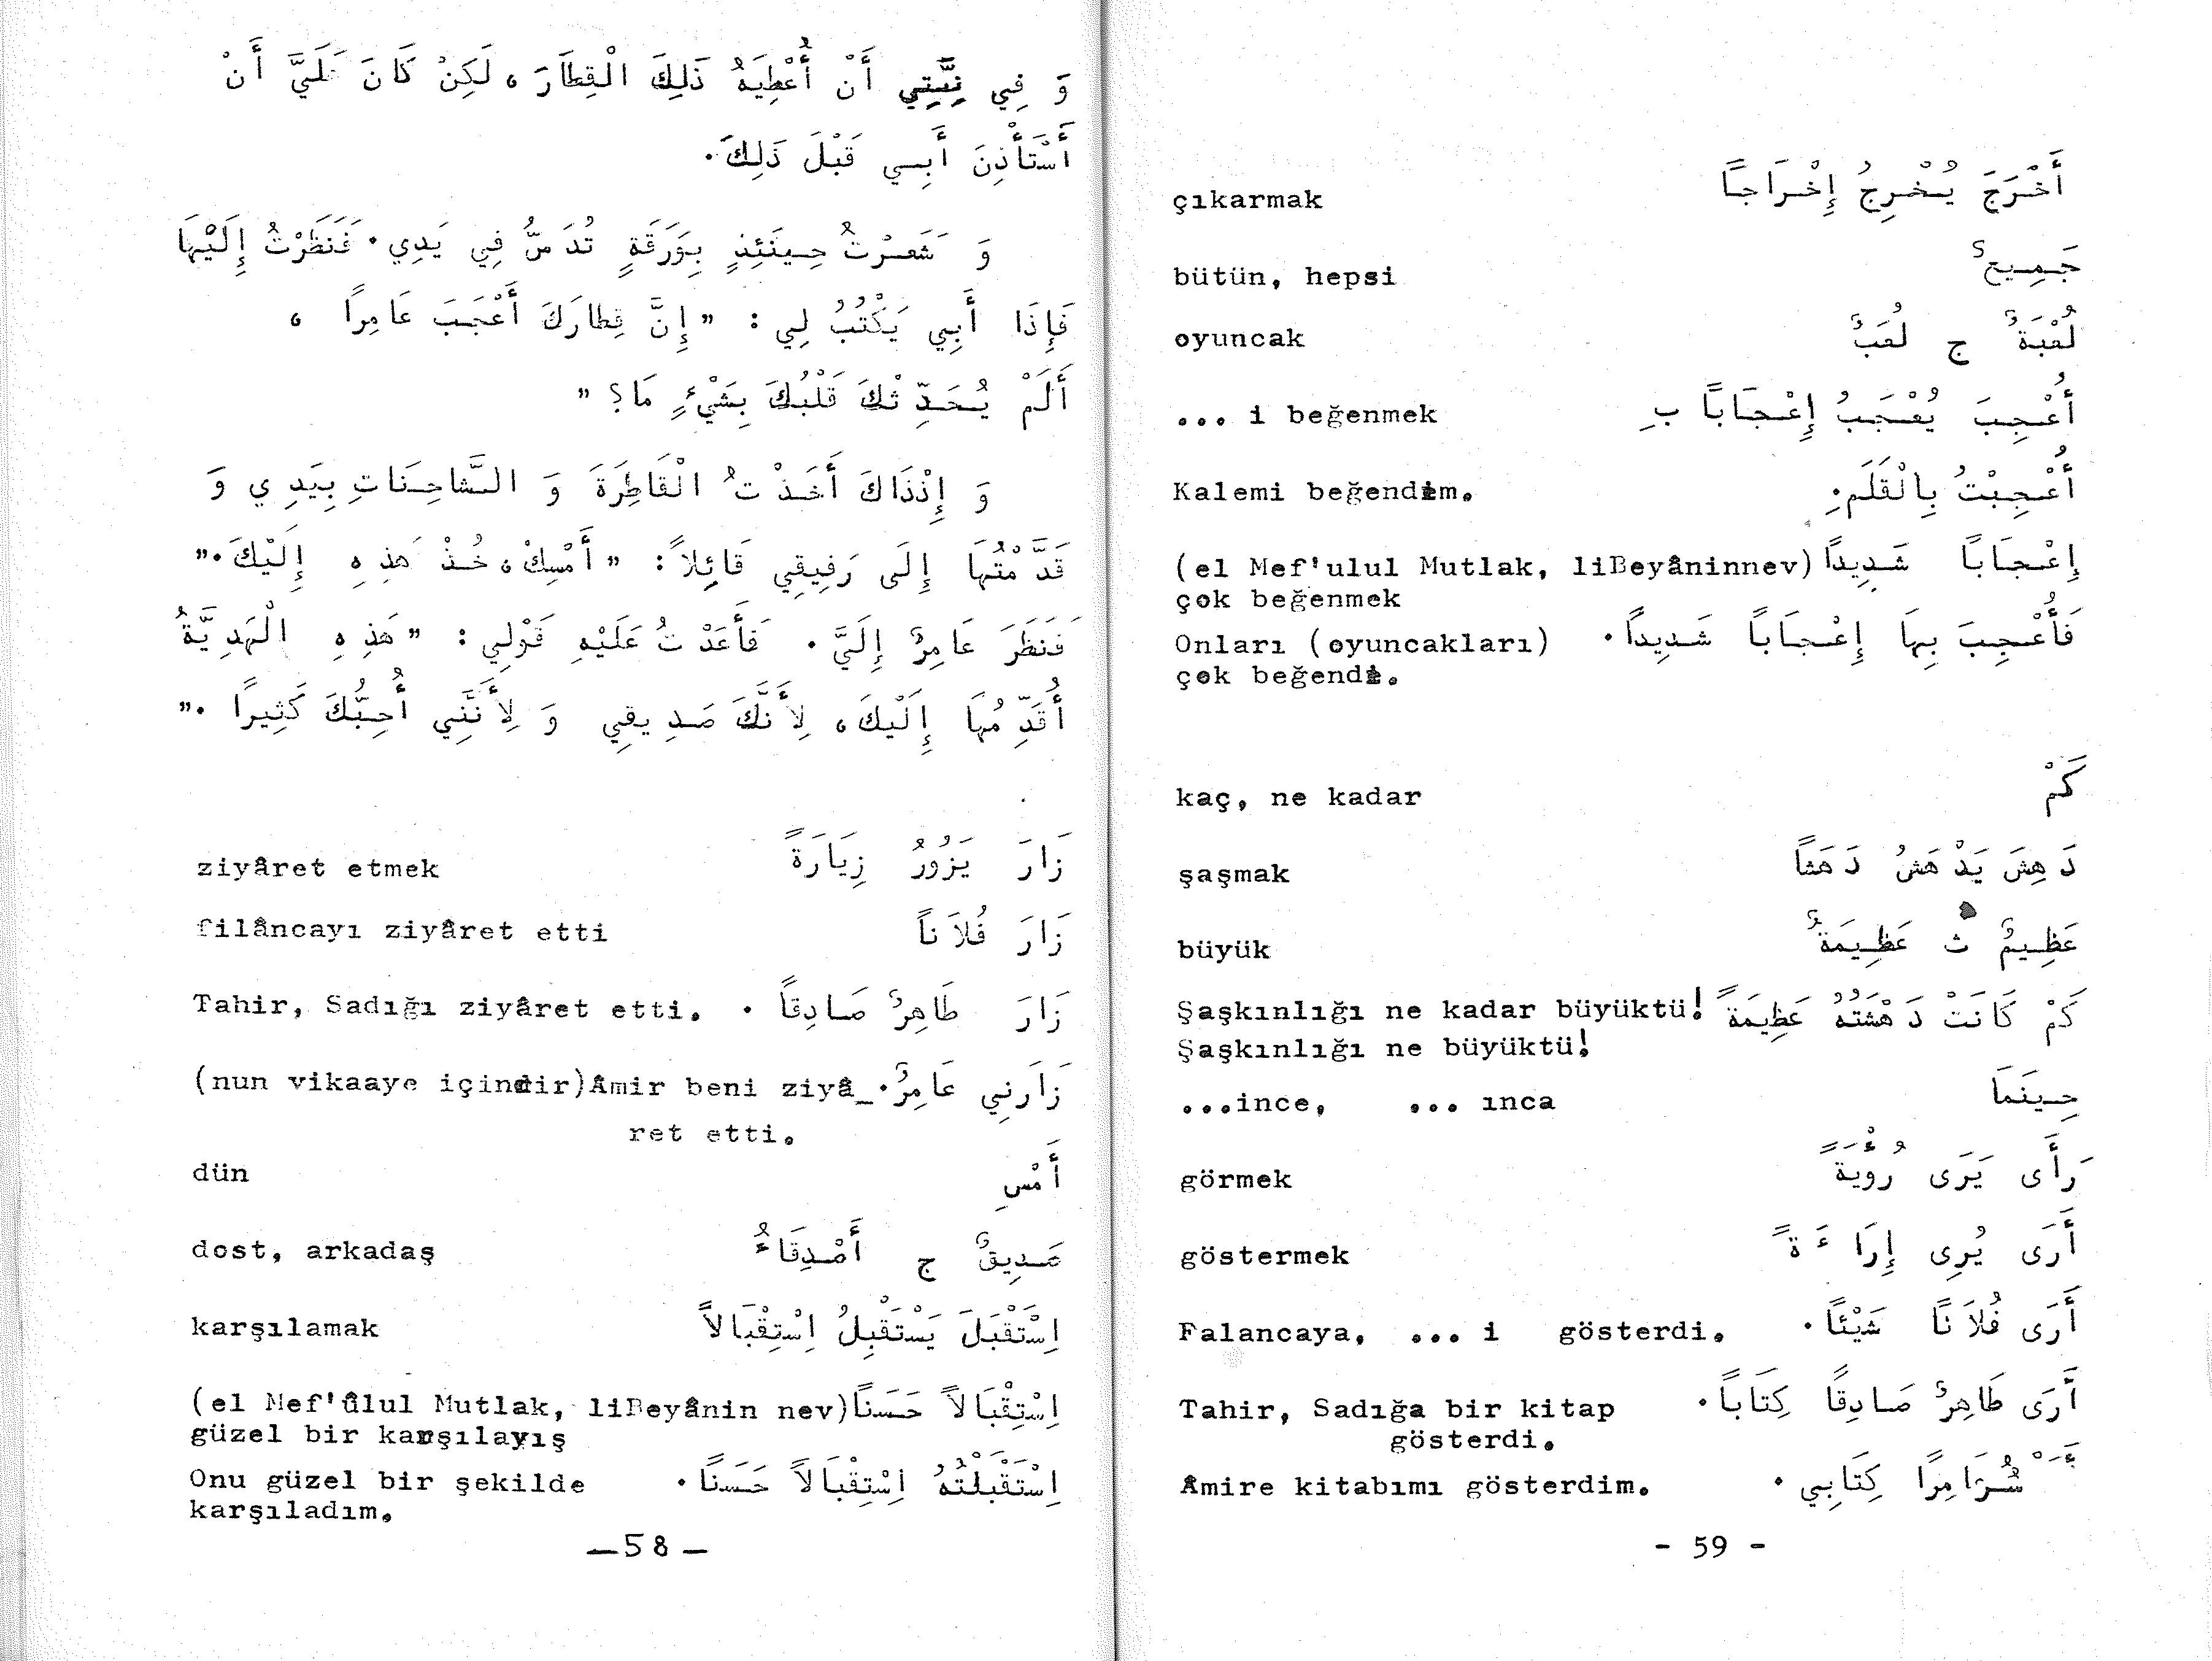 وَ فِي نِيَّتِي أَنْ أُعْطِيَهُ ذَلِكَ الْقِطَارَ، لَكِنْ كَانَ عَلَيَّ أَنْ
أَسْتَأْذِنَ أَبِي قَبْلَ ذَلِكَ.
وَ شَعَرْتُ حِينَئِذٍ بِوَرَقَةٍ تُدَسُّ فِي يَدِي. فَنَظَرْتُ إِلَيْهَا
فَإِذَا أَبِي يَكْتُبُ لِي : " إِنَّ قِطارَكَ أَعْجَبَ عَامِرًا ،
أَلَمْ يُحَدِّثْكَ قَلْبُكَ بِشَيْءٍ مَا؟ "
وَ إِذْذَاكَ أَخَذْتُ الْقَاطِرَةَ وَ الشَّاحِنَاتِ بِيَدِي وَ
قَدَّمْتُهَا إِلَى رَفِيقِي قَائِلاً: " أَمْسِكْ، خُذْ هَذِهِ إِلَيْكَ."
فَنَظَرَ عَامِرٌ إِلَيَّ. فَأَعَدْتُ عَلَيْهِ قَوْلِي : " هَذِهِ الْهَدِيَّةُ
أُقَدِّمُهَا إِلَيْكَ، لِأَنَّكَ صَدِيقِي وَ لِأَنَّنِي أُحِبُّكَ كَثِيرًا ."
ziyâret etmek زَارَ يَزُورُ زِيَارَةً
filâncayı ziyâret etti زَارَ فُلاَناً
Tahir, Sadığı ziyâret etti. زَارَ طَاهِرٌ صَادِقاً .
(nun vikaaye içindir)Âmir beni ziyâ_ زَارَنِي عَامِرٌ.
ret etti.
dün أَمْسِ
dost, arkadaş صَدِيقٌ ج أَصْدِقَاءُ
karşılamak اِسْتَقْبَلَ يَسْتَقْبِلُ اِسْتِقْبَالاً
(el Mef'ûlul Mutlak, liBeyânin nev) اِسْتِقْبَالاً حَسَنًا
güzel bir karşılayış
Onu güzel bir şekilde اِسْتَقْبَلْتُهُ اِسْتِقْبَالاً حَسَنًا .
karşıladım.
—58—
çıkarmak أَخْرَجَ يُخْرِجُ إِخْرَاجاً
bütün, hepsi جَمِيعٌ
oyuncak لُعْبَةٌ ج لُعَبٌ
... i beğenmek أُعْجِبَ يُعْجَبُ إِعْجَاباً بِ
Kalemi beğendim. أُعْجِبْتُ بِالْقَلَمِ.
(el Mef'ulul Mutlak, liBeyâninnev) إِعْجَاباً شَدِيداً
çok beğenmek
Onları (oyuncakları) فَأُعْجِبَ بِهَا إِعْجَاباً شَدِيداً .
çok beğendi.
kaç, ne kadar كَمْ
şaşmak دَهِشَ يَدْهَشُ دَهَشاً
büyük عَظِيمٌ ث عَظِيمَةٌ
Şaşkınlığı ne kadar büyüktü! كَمْ كَانَتْ دَهْشَتُهُ عَظِيمَةً
Şaşkınlığı ne büyüktü!
...ince, ... ınca حِينَمَا
görmek رَأَى يَرَى رُؤْيَةً
göstermek أَرَى يُرِى إِرَاءَةً
Falancaya, ... i gösterdi. أَرَى فُلاَنًا شَيْئًا .
Tahir, Sadığa bir kitap أَرَى طَاهِرٌ صَادِقًا كِتَاباً .
gösterdi.
Âmire kitabımı gösterdim. كِتَابِي .
- 59 -